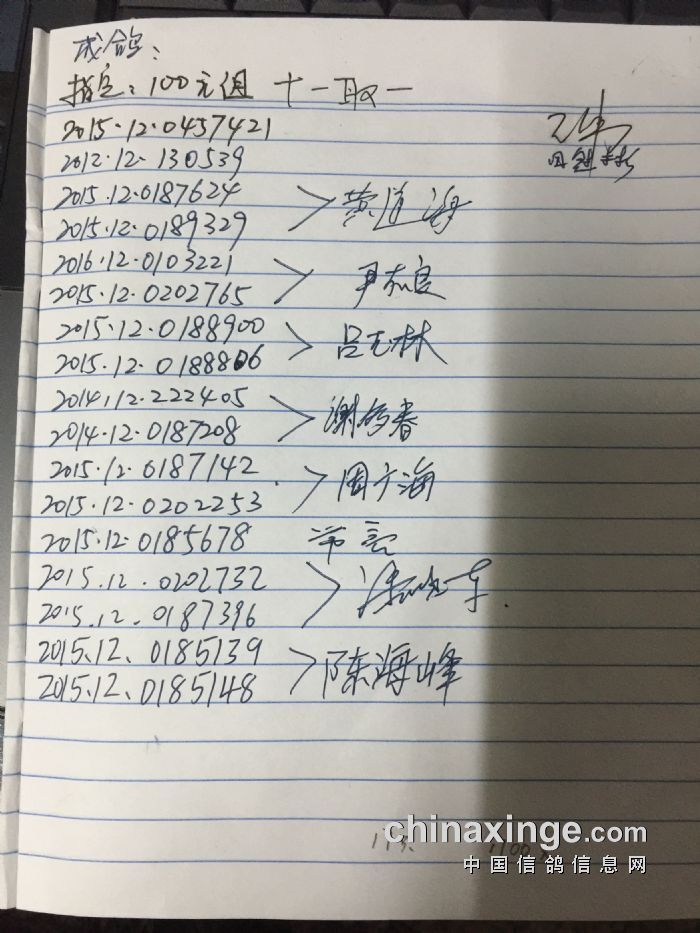 成鸽：
指定：100元组 十一取一
2015.12.0457421
2012.12-130539
2015.12.0187624
黄道海
2015.12.0189329
2016.12.0103221
尹东良
2015.12.0202765
2015.12.0188900
吕玉林
2015.12.0188806
2014.12.222405
谢传春
2014.12.0187208
2015.12.0187142
周广海
2015.12.0202253
2015.12.0185678 常亮
2015.12.0202732
2015.12.0187396
2015.12.0185139
陈海峰
2015.12.0185148
chinaxinge.com
中国信鸽信息网